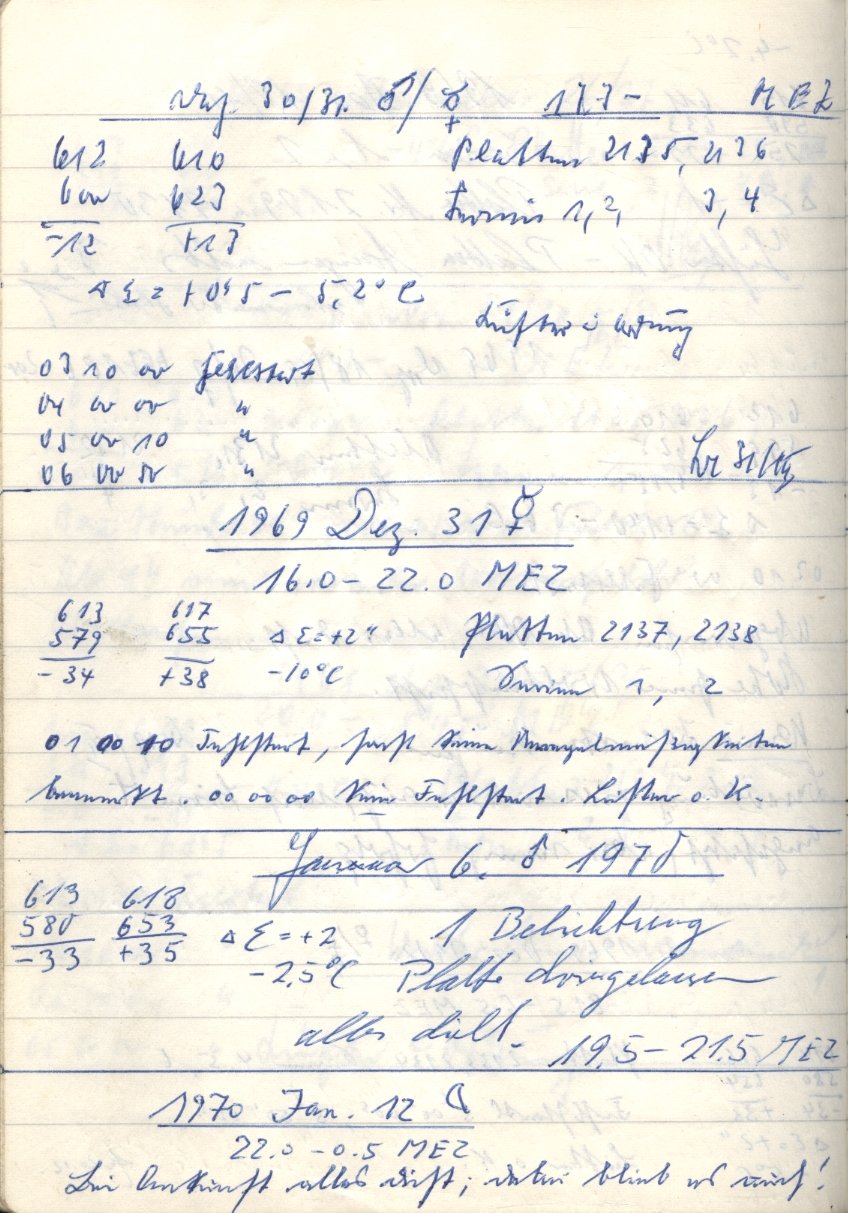 Dez. 30/31. ♂/☿ 17,3 – MEZ
612 610 Platten 2135, 2136
600 623 Servus 1, 2, 3, 4
-12 +13
Δ Σ = +0,5 – 5,2°C
Lüfter in Ordnung
03 10 00 Fehlstart
04 00 00 "
05 00 10 "
06 00 50 "
1969 Dez. 31 ☿
16.0 – 22.0 MEZ
613 617
579 655 Δ Σ = +2" Platten 2137, 2138
-34 +38 -10°C 1, 2
01 00 10 Fehlstart, sonst keine Unregelmäßigkeiten
bemerkt. 00 00 00 kein Fehlstart. Lüfter o. K.
Januar 6. ♂ 1970
613 618
580 653 Δ Σ = +2 1 Belichtung
-33 +35 -2,5°C Platte dringelassen
alles dicht.
19,5 – 21,5 MEZ
1970 Jan. 12 ☾
22.0 – 0.5 MEZ
Bei Ankunft alles dicht; dabei blieb es auch!